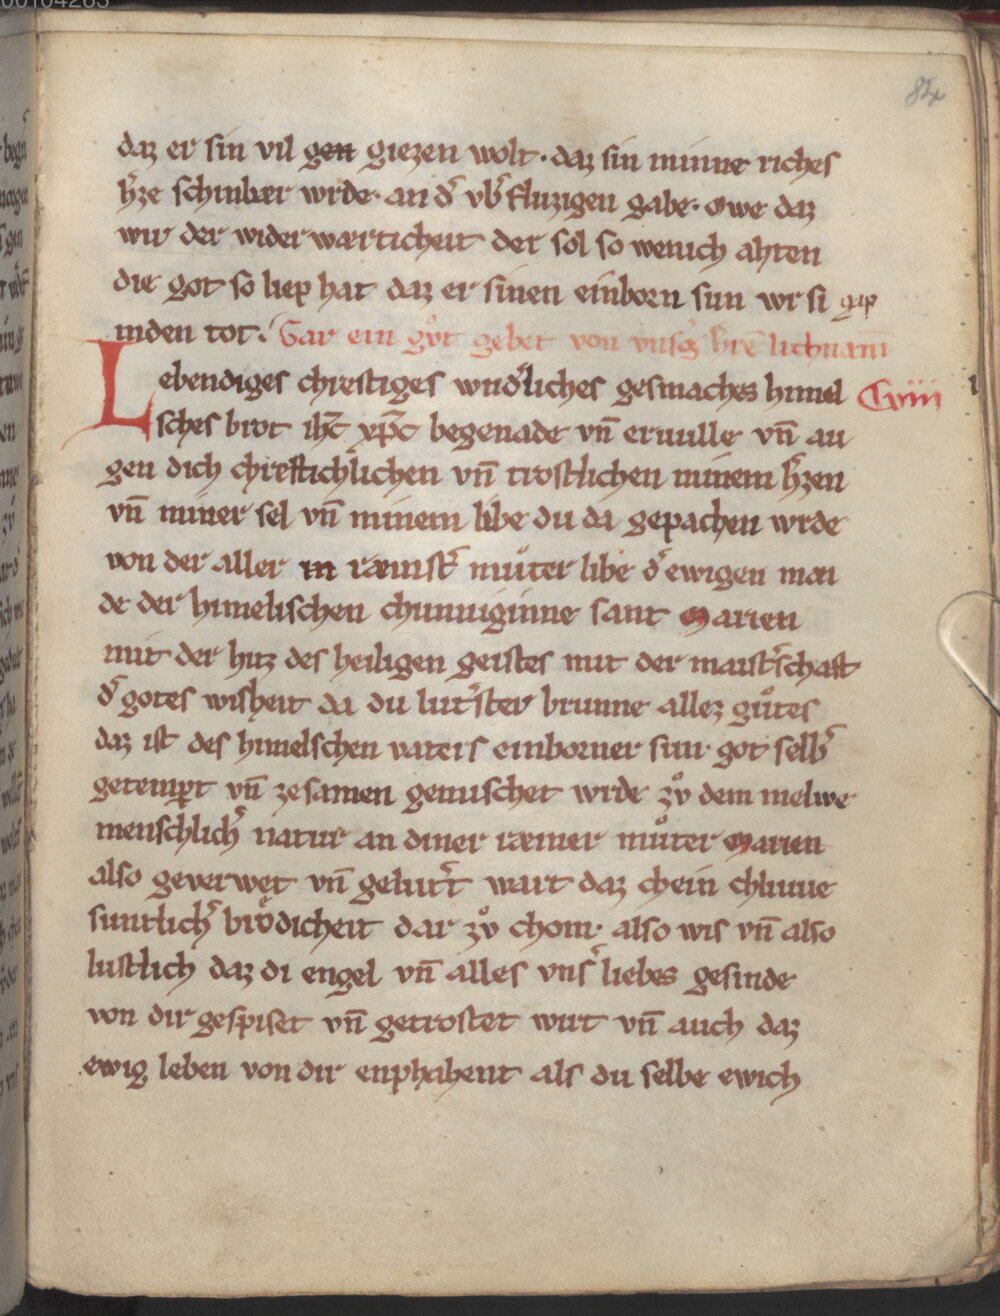 84
daz er sin vil gen giezen wolt · daz sin minne riches
h͛ze schinbær wrde · an d͛ vb͛fluzigen gabe · owe daz
wir der widerwærticheit der sol so wenich ahten
die got so liep hat daz er sinen einborn sun wr si gap
inden tot · Gar ein gůt gebet von vnsers h͛re lichnam
Lebendiges chreftiges wnd͛liches gesmaches himel Cviii
sches brot ihc̄ xp̄c begenade vn̄ ervulle vn̄ au
gen dich chreftichlichen vn̄ trostlichen minem h͛zen
vn̄ miner sel vn̄ minem libe du da gepachen wrde
von der aller in ræinist͛ můter libe d͛ ewigen mæi
de der himelischen chuniginne sant Marien
mit der hitz des heiligen geistes mit der maist͛schaft
d͛ gotes wisheit da du lut͛ster brunne allez gůtes
daz ist des himelschen vaters einborner sun · got selb͛
getemp͛t vn̄ zesamen gemischet wrde zů dem melwe
menschlich͛ natur an diner ræiner můter Marien
also geverwet vn̄ gelutt͛t wart daz chein chliuue
suntlich͛ brǒdicheit dar zů chom · also wis vn̄ also
lustlich daz di engel vn̄ alles vns͛ liebes gesinde
von dir gespiset vn̄ getrostet wirt vn̄ auch daz
ewig leben von dir enphahent als du selbe ewich